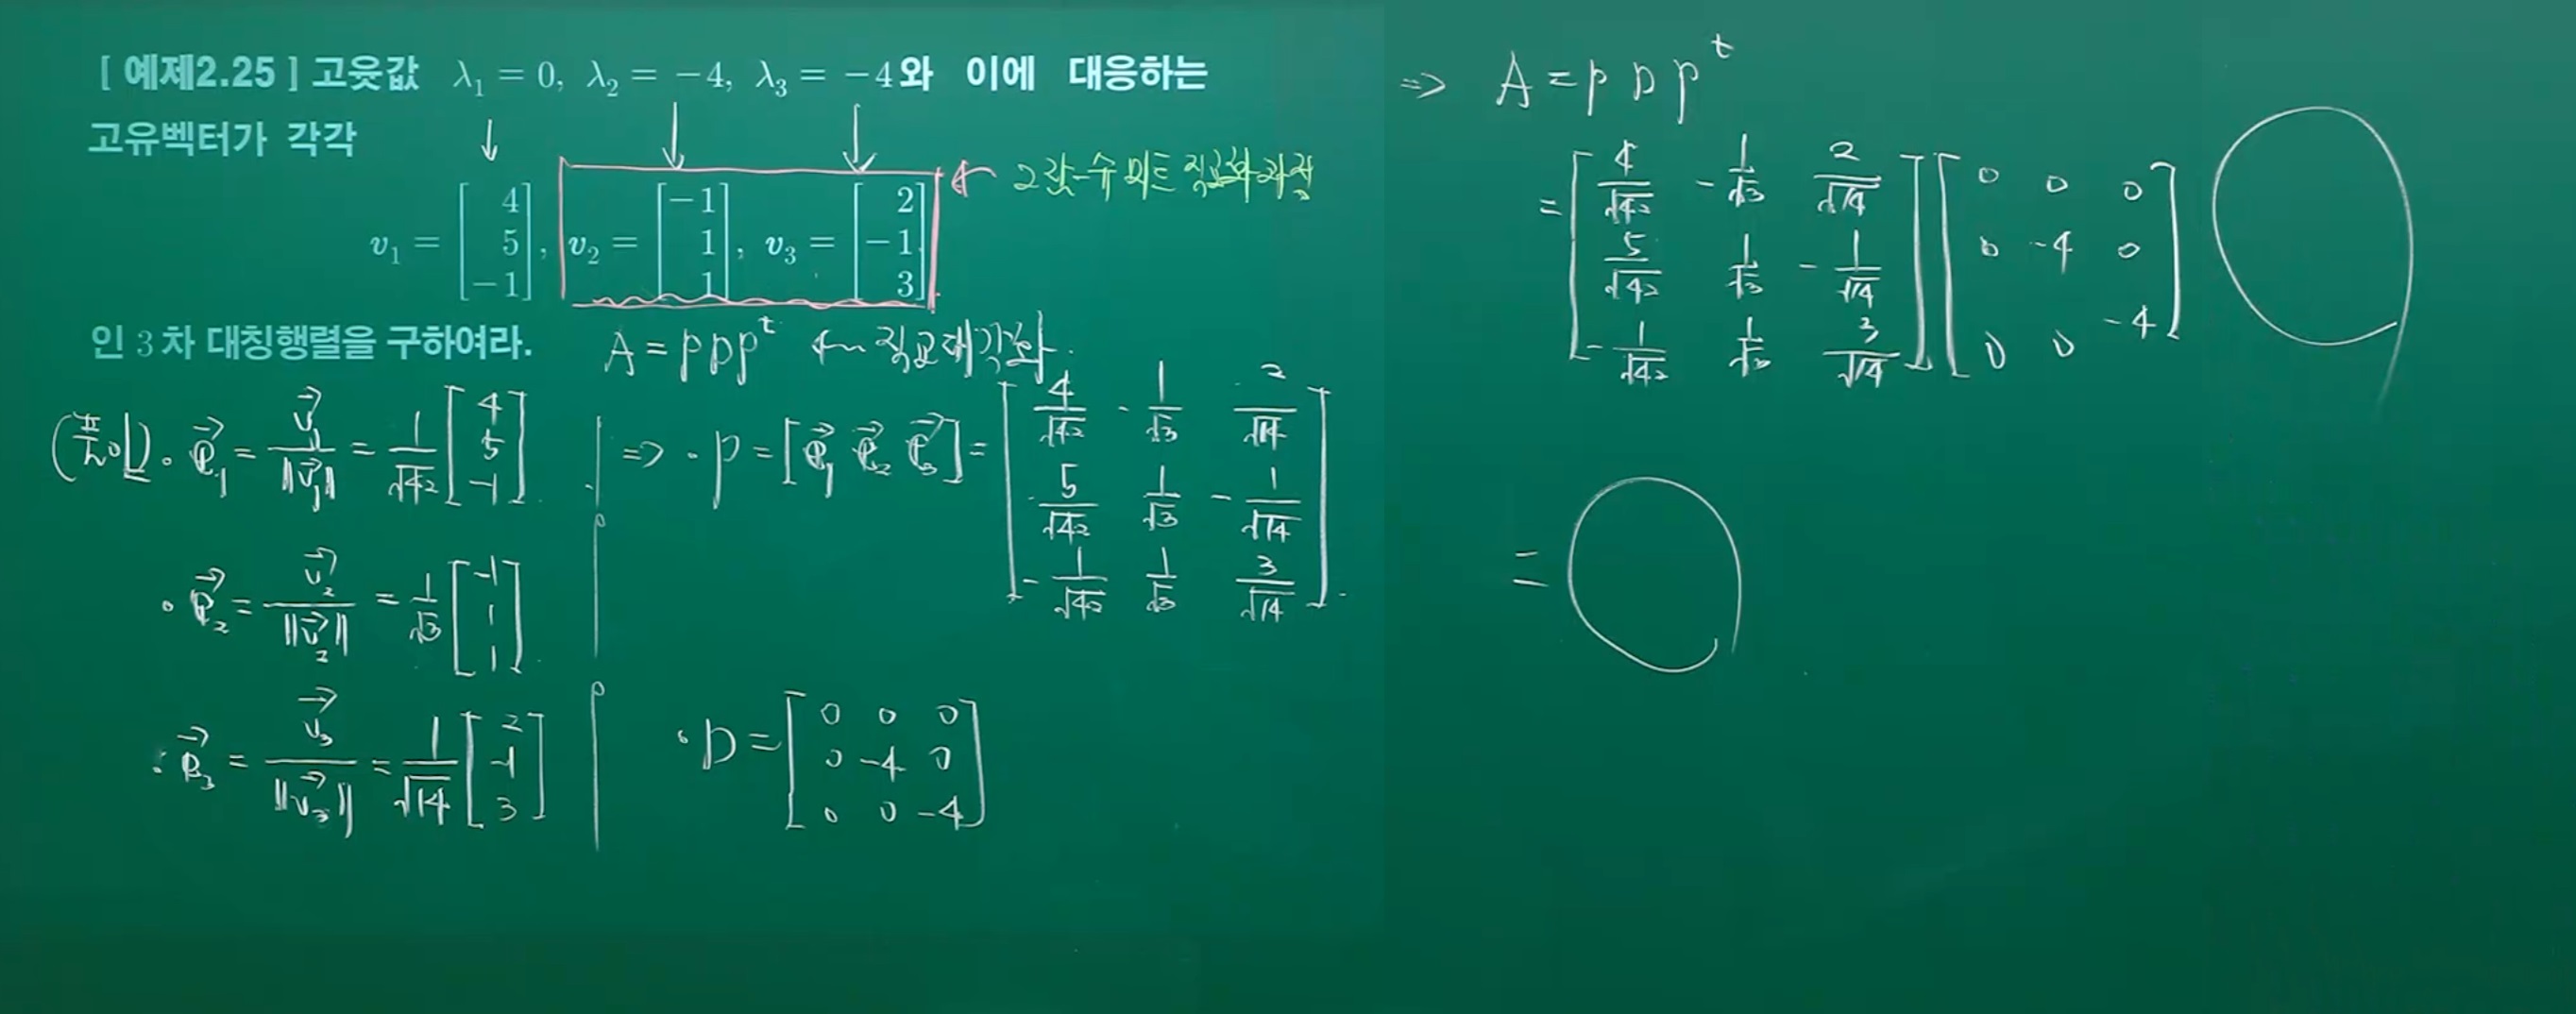 [ 예제2.25 ] 고윳값 λ₁ = 0, λ₂ = −4, λ₃ = −4와 이에 대응하는
고유벡터가 각각
v₁ = [4 5 −1], v₂ = [−1 1 1], v₃ = [2 −1 3]
인 3차 대칭행렬을 구하여라.
A = PDPᵗ ← 직교대각화.
(풀이). P₁ = v₁/‖v₁‖ = 1/√42 [4 5 −1]
· P₂ = v₂/‖v₂‖ = 1/√3 [−1 1 1]
· P₃ = v₃/‖v₃‖ = 1/√14 [2 −1 3]
⇒ · P = [P₁ P₂ P₃] =
4/√42 −1/√3 2/√14
5/√42 1/√3 −1/√14
−1/√42 1/√3 3/√14
· D =
0 0 0
0 −4 0
0 0 −4
⇒ A = PDPᵗ
=
4/√42 −1/√3 2/√14
5/√42 1/√3 −1/√14
−1/√42 1/√3 3/√14
0 0 0
0 −4 0
0 0 −4
=